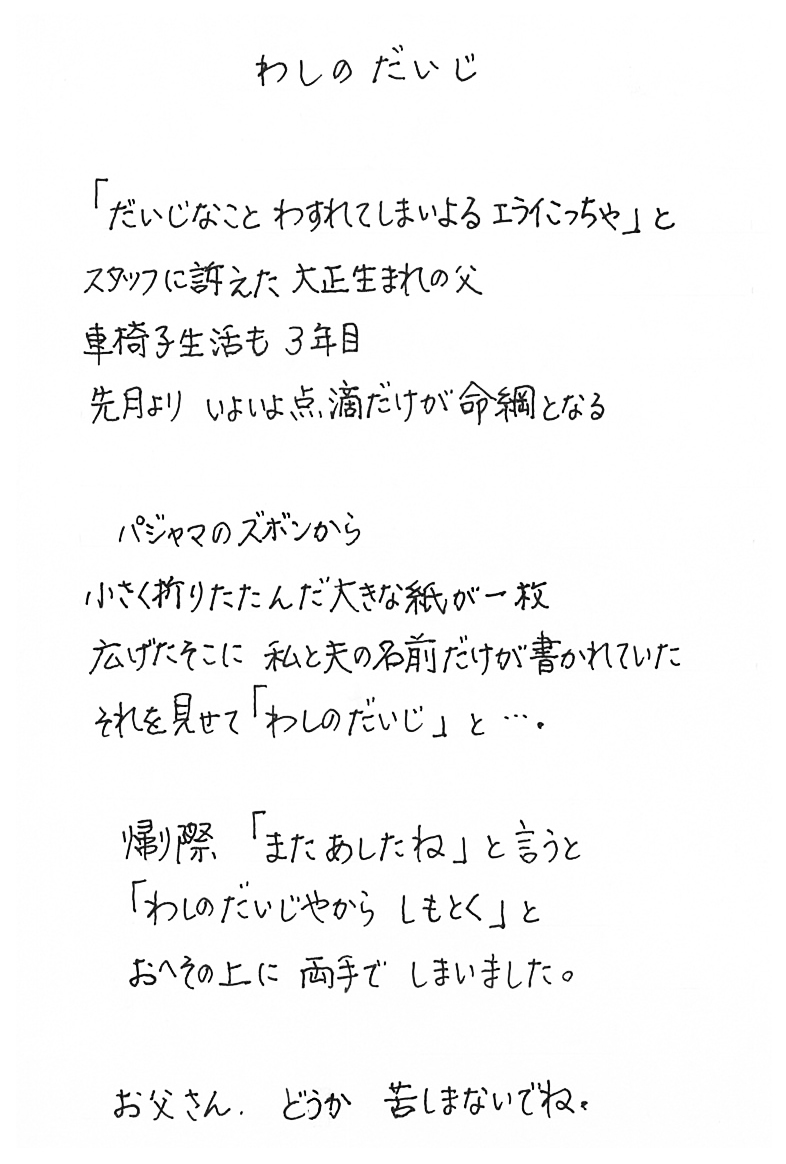 わしのだいじ
「だいじなこと わすれてしまいよる エライこっちゃ」と
スタッフに訴えた 大正生まれの父
車椅子生活も 3年目
先月より いよいよ点滴だけが命綱となる
パジャマのズボンから
小さく折りたたんだ大きな紙が一枚
広げたそこに 私と夫の名前だけが書かれていた
それを見せて「わしのだいじ」と….
帰り際 「またあしたね」と言うと
「わしのだいじやから しもとく」と
おへその上に 両手で しまいました。
お父さん. どうか 苦しまないでね.